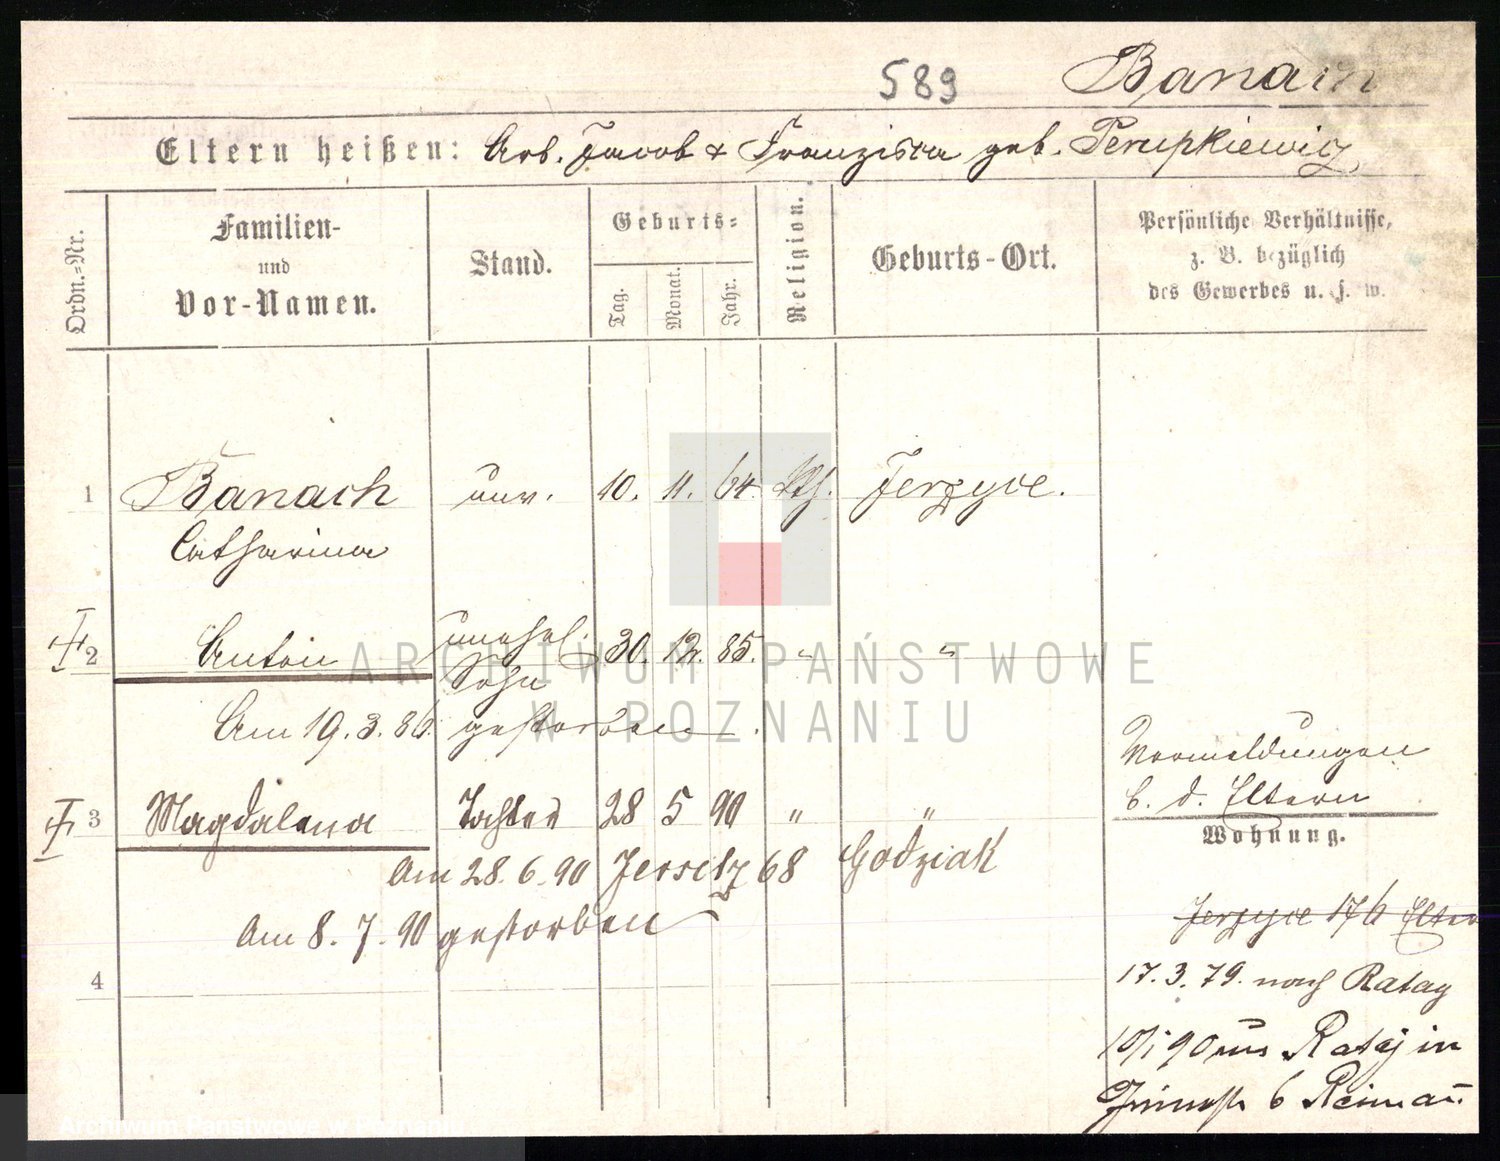 589
Banach
Eltern heißen: Arb. Jacob & Franziska geb. Perupkiewicz
Ordn.-Nr.
Familien- und Vor-Namen.
Stand.
Geburts-
Tag.
Monat.
Jahr.
Religion.
Geburts-Ort.
Persönliche Verhältnisse,
z. B. bezüglich
des Gewerbes u. s. w.
1 Banach unv. 10. 11. 64. kth. Jerzyce.
Catharina
2 Anton unehel. 30. 12. 85. " "
Sohn
Am 19. 3. 86. gestorben.
Vermeldungen
b. d. Eltern
3 Magdalena Tochter 28 5 90 " "
Wohnung.
Am 28. 6. 90 Jersitz 68 Godziak
Jerzyce 176 Elter
Am 8. 7. 90 gestorben
4
17. 3. 79. nach Ratay
aus Rataj in
6
ARCHIWUM PAŃSTWOWE
W POZNANIU
Archiwum Państwowe w Poznaniu